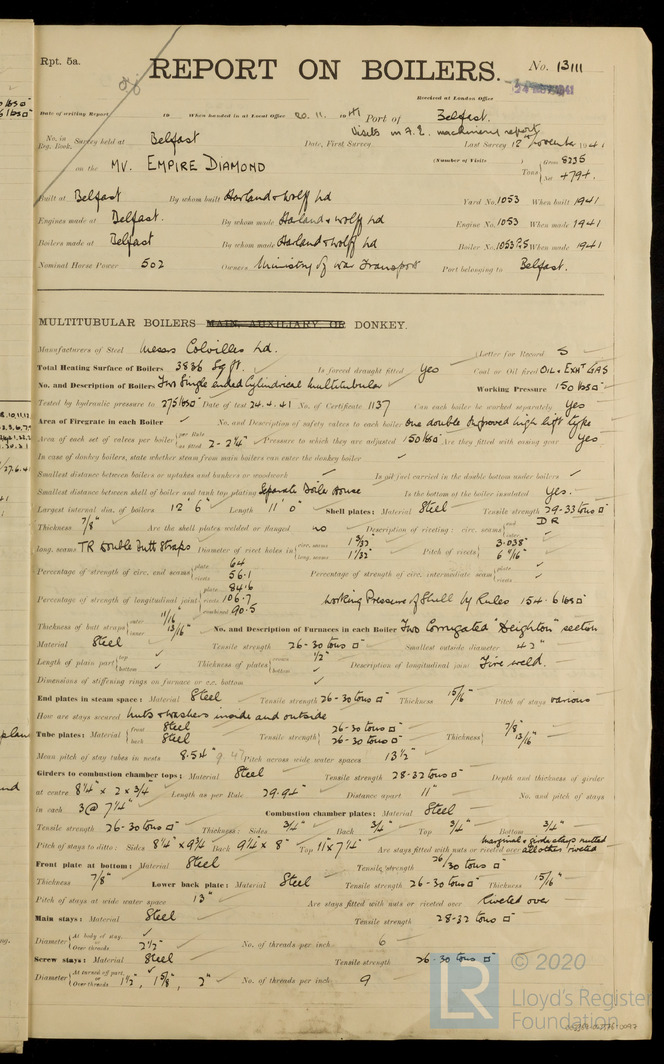 Rpt. 5a.
REPORT ON BOILERS.
No. 13111
Received at London Office
24 NOV 1941
Date of writing Report 19 When handed in at Local Office 20.11. 1941 Port of Belfast.
No. in Reg. Book. Survey held at Belfast Date, First Survey Visits in M.E. machinery report Last Survey 12th November 1941
on the MV. EMPIRE DIAMOND (Number of Visits ) Tons { Gross 8236
Net 4794.
Built at Belfast By whom built Harland & Wolff Ltd Yard No. 1053 When built 1941
Engines made at Belfast. By whom made Harland & Wolff Ltd Engine No. 1053 When made 1941
Boilers made at Belfast By whom made Harland & Wolff Ltd Boiler No. 1053 P.S When made 1941
Nominal Horse Power 502 Owners Ministry of War Transport Port belonging to Belfast.
MULTITUBULAR BOILERS MAIN, AUXILIARY OR DONKEY.
Manufacturers of Steel Messrs Colvilles Ltd. (Letter for Record S
Total Heating Surface of Boilers 3836 Sq ft. Is forced draught fitted Yes Coal or Oil fired OIL & EXHT GAS
No. and Description of Boilers Two Single ended Cylindrical multitubular Working Pressure 150 lbs □"
Tested by hydraulic pressure to 275 lbs □" Date of test 24.4.41 No. of Certificate 1137 Can each boiler be worked separately Yes
Area of Firegrate in each Boiler ✓ No. and Description of safety valves to each boiler One double Improved high lift type
Area of each set of valves per boiler { per Rule
as fitted 2 - 2¼" Pressure to which they are adjusted 150 lbs □" Are they fitted with easing gear Yes
In case of donkey boilers, state whether steam from main boilers can enter the donkey boiler ✓
Smallest distance between boilers or uptakes and bunkers or woodwork ✓ Is oil fuel carried in the double bottom under boilers ✓
Smallest distance between shell of boiler and tank top plating Separate Boiler House Is the bottom of the boiler insulated Yes.
Largest internal dia. of boilers 12' 6" Length 11' 0" Shell plates: Material Steel Tensile strength 29-33 tons □"
Thickness 7/8" Are the shell plates welded or flanged no Description of riveting: circ. seams { end D R
inter. ✓
long. seams TR Double Butt Straps Diameter of rivet holes in { circ. seams 1 3/32"
long. seams 1 1/32" Pitch of rivets { 3.038"
6 9/16"
Percentage of strength of circ. end seams { plate 64
rivets 56.1 Percentage of strength of circ. intermediate seam { plate ✓
rivets ✓
Percentage of strength of longitudinal joint { plate 84.6
rivets 106.7
combined 90.5 Working Pressure of Shell by Rules 154.6 lbs □"
Thickness of butt straps { outer 11/16"
inner 13/16" No. and Description of Furnaces in each Boiler Two Corrugated "Deighton" section
Material Steel Tensile strength 26-30 tons □" Smallest outside diameter 42"
Length of plain part { top ✓
bottom ✓ Thickness of plates { crown
bottom 1/2" Description of longitudinal joint Fire weld.
Dimensions of stiffening rings on furnace or c.c. bottom ✓
End plates in steam space: Material Steel Tensile strength 26-30 tons □" Thickness 15/16" Pitch of stays various
How are stays secured nuts & washers inside and outside
Tube plates: Material { front Steel
back Steel Tensile strength { 26-30 tons □"
26-30 tons □" Thickness { 7/8"
13/16"
Mean pitch of stay tubes in nests 8.54" 9.47 Pitch across wide water spaces 13½"
Girders to combustion chamber tops: Material Steel Tensile strength 28-32 tons □" Depth and thickness of girder
at centre 8¼" x 2 x 3/4" Length as per Rule 29.94" Distance apart 11" No. and pitch of stays
in each 3 @ 7¼" Combustion chamber plates: Material Steel
Tensile strength 26-30 tons □" Thickness: Sides 3/4" Back 3/4" Top 3/4" Bottom 3/4"
Pitch of stays to ditto: Sides 8¼" x 9¾ Back 9¼" x 8" Top 11" x 7¼" Are stays fitted with nuts or riveted over marginal & girder stays nutted all other riveted
Front plate at bottom: Material Steel Tensile strength 26/30 tons □"
Thickness 7/8" Lower back plate: Material Steel Tensile strength 26-30 tons □" Thickness 15/16"
Pitch of stays at wide water space 13" Are stays fitted with nuts or riveted over Riveted over
Main stays: Material Steel Tensile strength 28-32 tons □"
Diameter { At body of stay, ✓
or
Over threads 2½" No. of threads per inch 6
Screw stays: Material Steel Tensile strength 26-30 tons □"
Diameter { At turned off part, ✓
or
Over threads 1½", 1 5/8", 2" No. of threads per inch 9
© 2020
LR
Lloyd's Register
Foundation